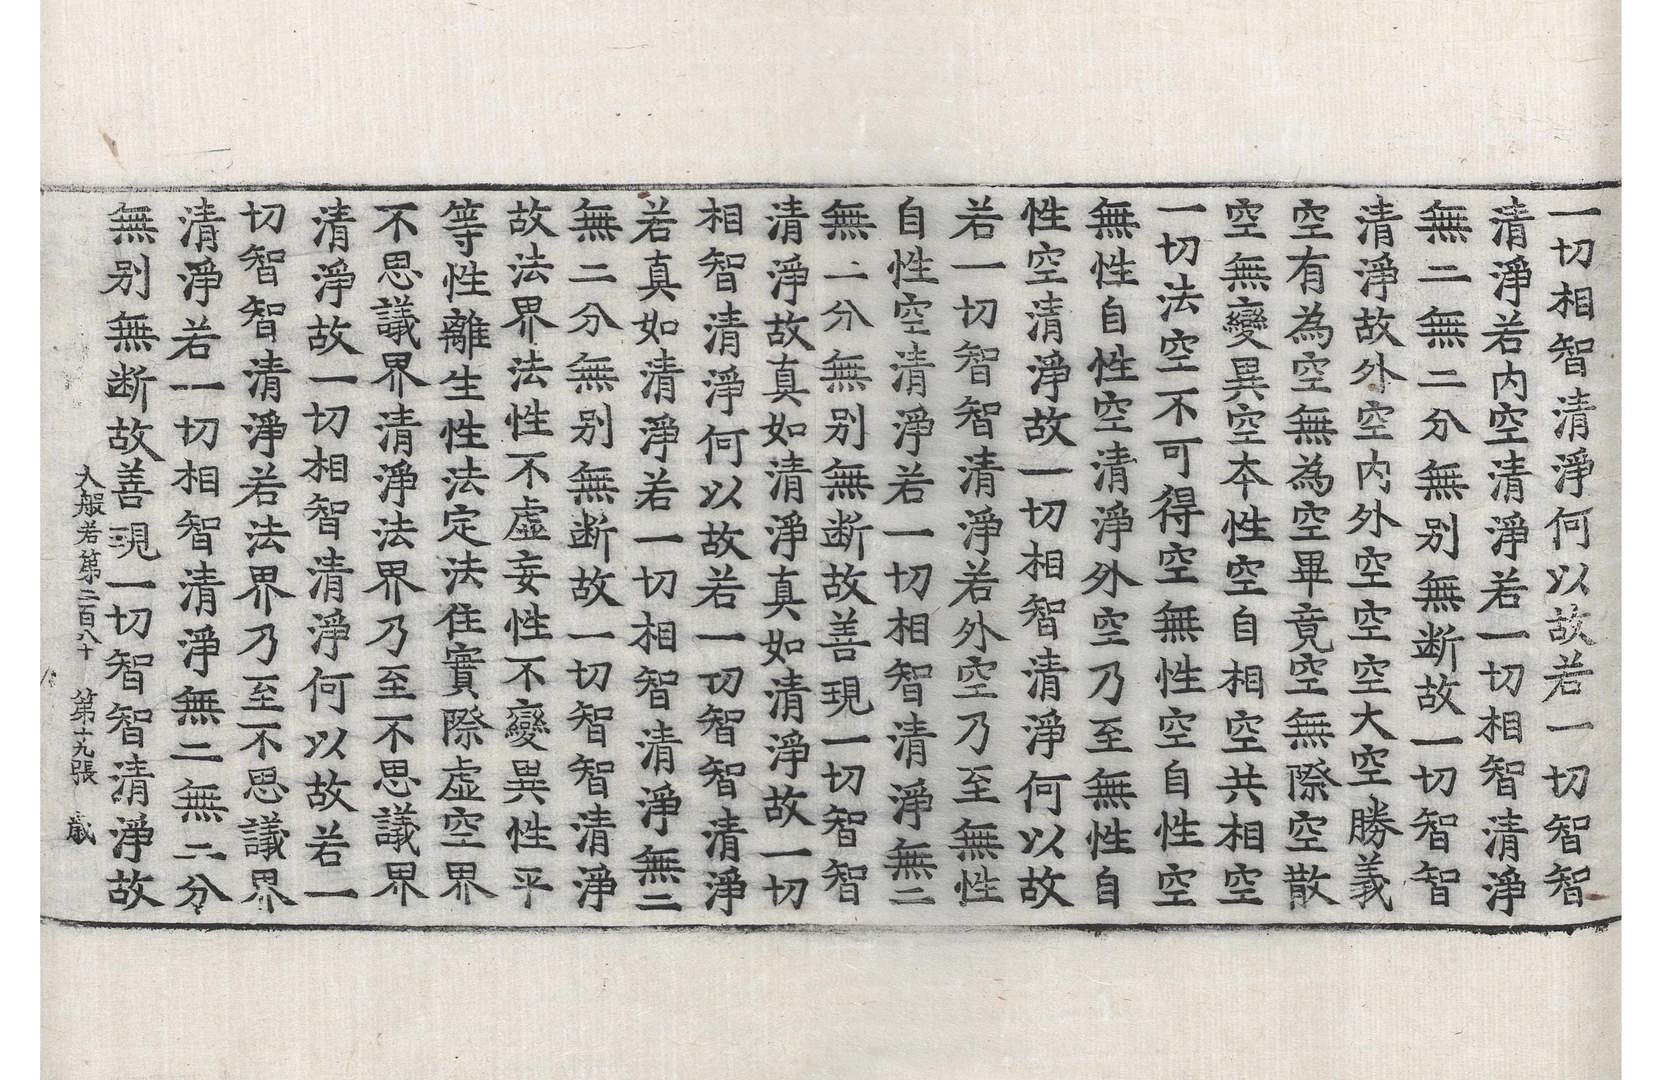 一切相智清淨何以故若一切智智
清淨若内空清淨若一切相智清淨
無二無二分無别無断故一切智智
清淨故外空内外空空空大空勝義
空有為空無為空畢竟空無際空散
空無變異空本性空自相空共相空
一切法空不可得空無性空自性空
無性自性空清淨外空乃至無性自
性空清淨故一切相智清淨何以故
若一切智智清淨若外空乃至無性
自性空清淨若一切相智清淨無二
無二分無别無断故善現一切智智
清淨故真如清淨真如清淨故一切
相智清淨何以故若一切智智清淨
若真如清淨若一切相智清淨無二
無二分無别無断故一切智智清淨
故法界法性不虛妄性不變異性平
等性離生性法定法住實際虛空界
不思議界清淨法界乃至不思議界
清淨故一切相智清淨何以故若一
切智智清淨若法界乃至不思議界
清淨若一切相智清淨無二無二分
無别無断故善現一切智智清淨故
大般若第二百八十 第十九張 歲